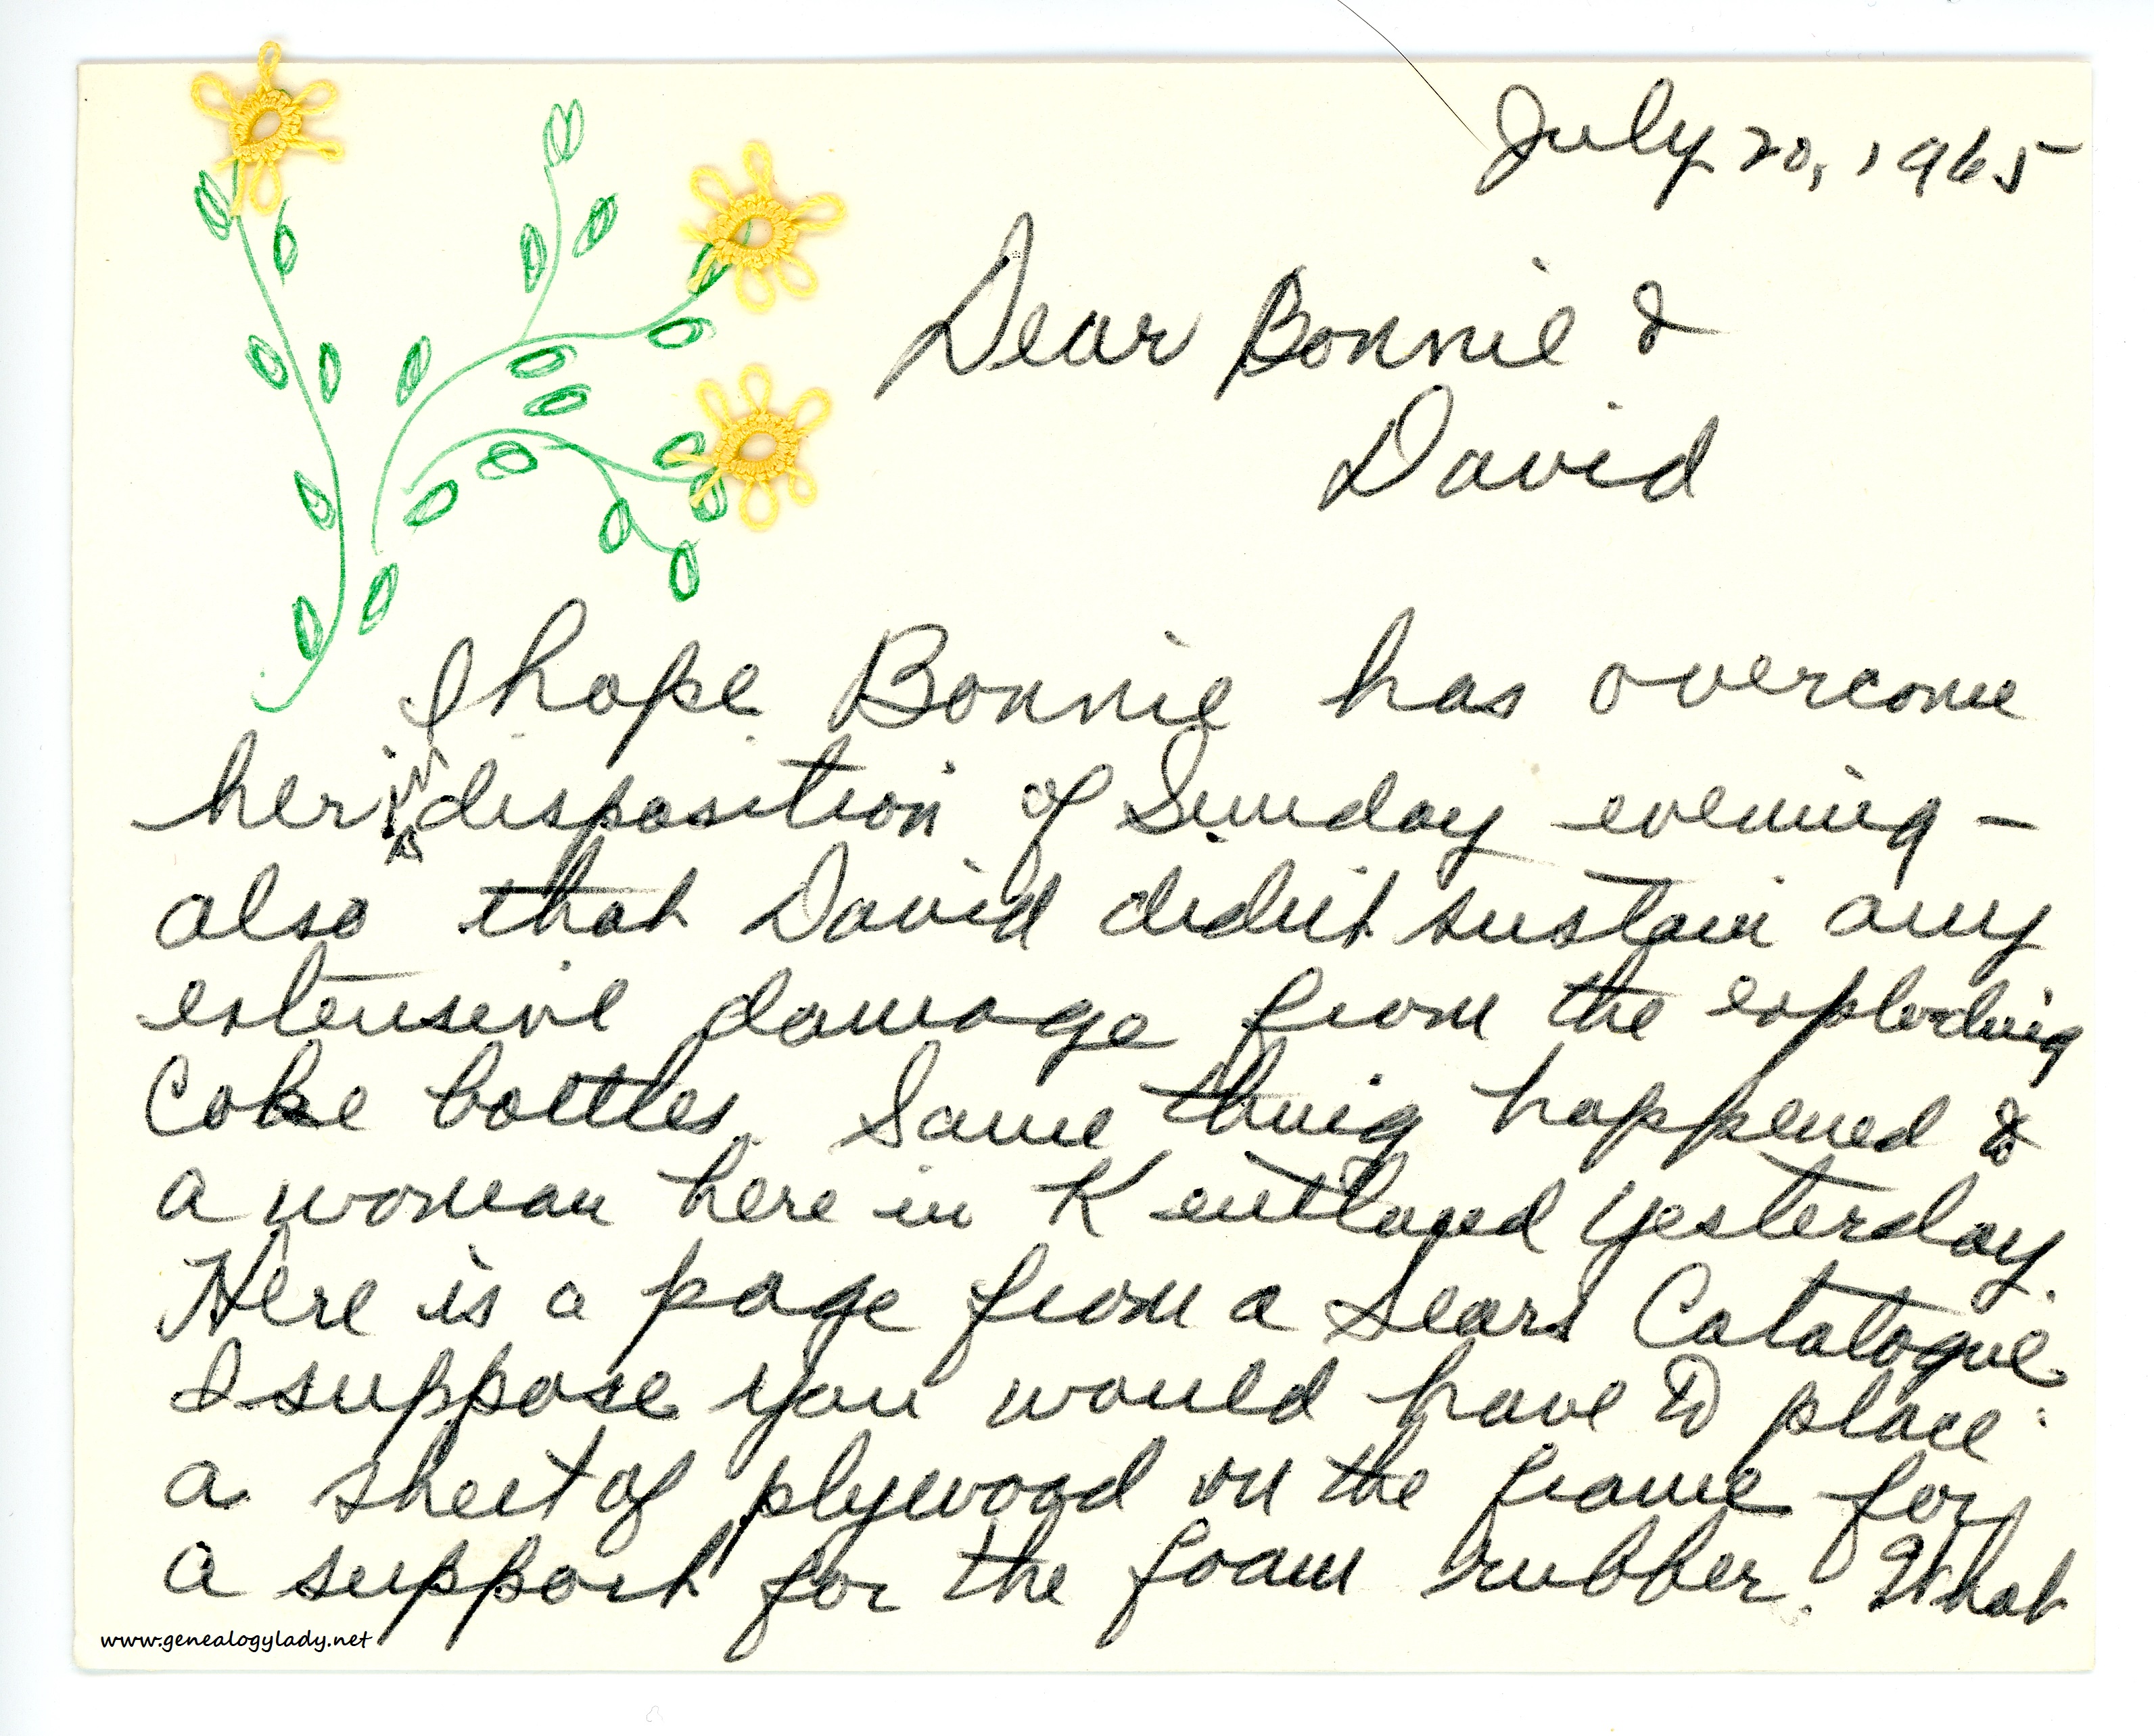 July 20, 1965
Dear Bonnie &
David
I hope Bonnie has overcome
her indisposition of Sunday evening –
also that David didn't sustain any
extensive damage from the exploding
Coke bottles. Same thing happened to
a woman here in Kentland yesterday.
Here is a page from a Sears Catalogue.
I suppose you would have to place
a sheet of plywood on the frame for
a support for the foam rubber. What
www.genealogylady.net